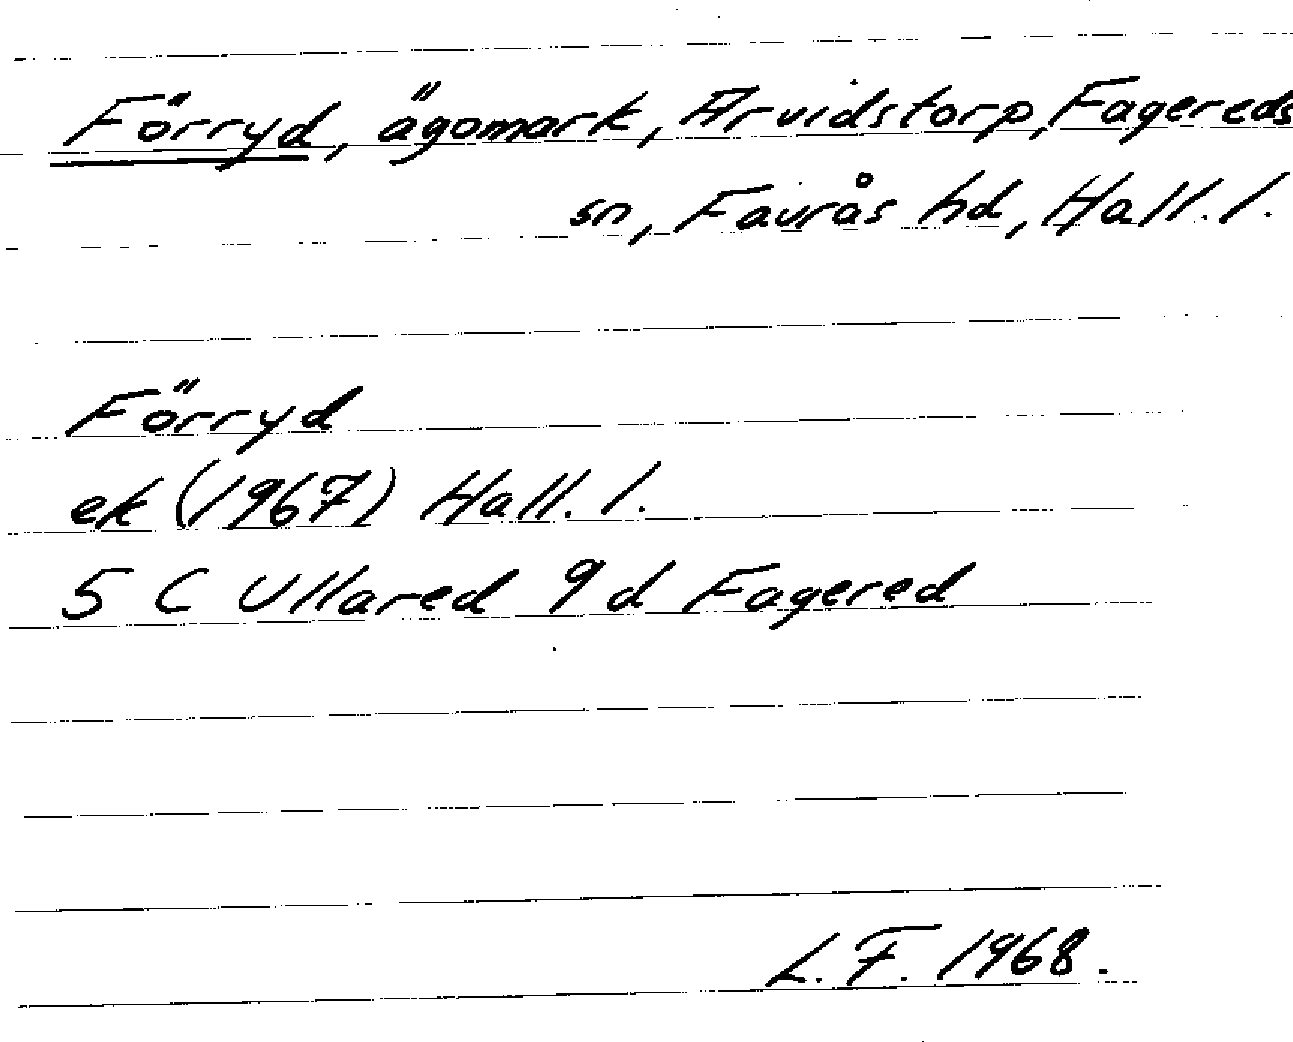 Förryd, ägomark, Arvidstorp, Fagereds
sn, Faurås hd, Hall. l.
Förryd
ek (1967) Hall. l.
5 C Ullared 9 d Fagered
L. F. 1968.